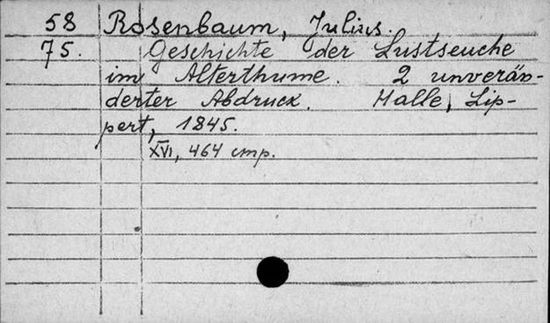 58 Rosenbaum, Julius.
75. Geschichte der Lustseuche
im Alterthume. 2 unverän-
derter Abdruck. Halle, Lip-
pert, 1845.
XVI, 464 стр.